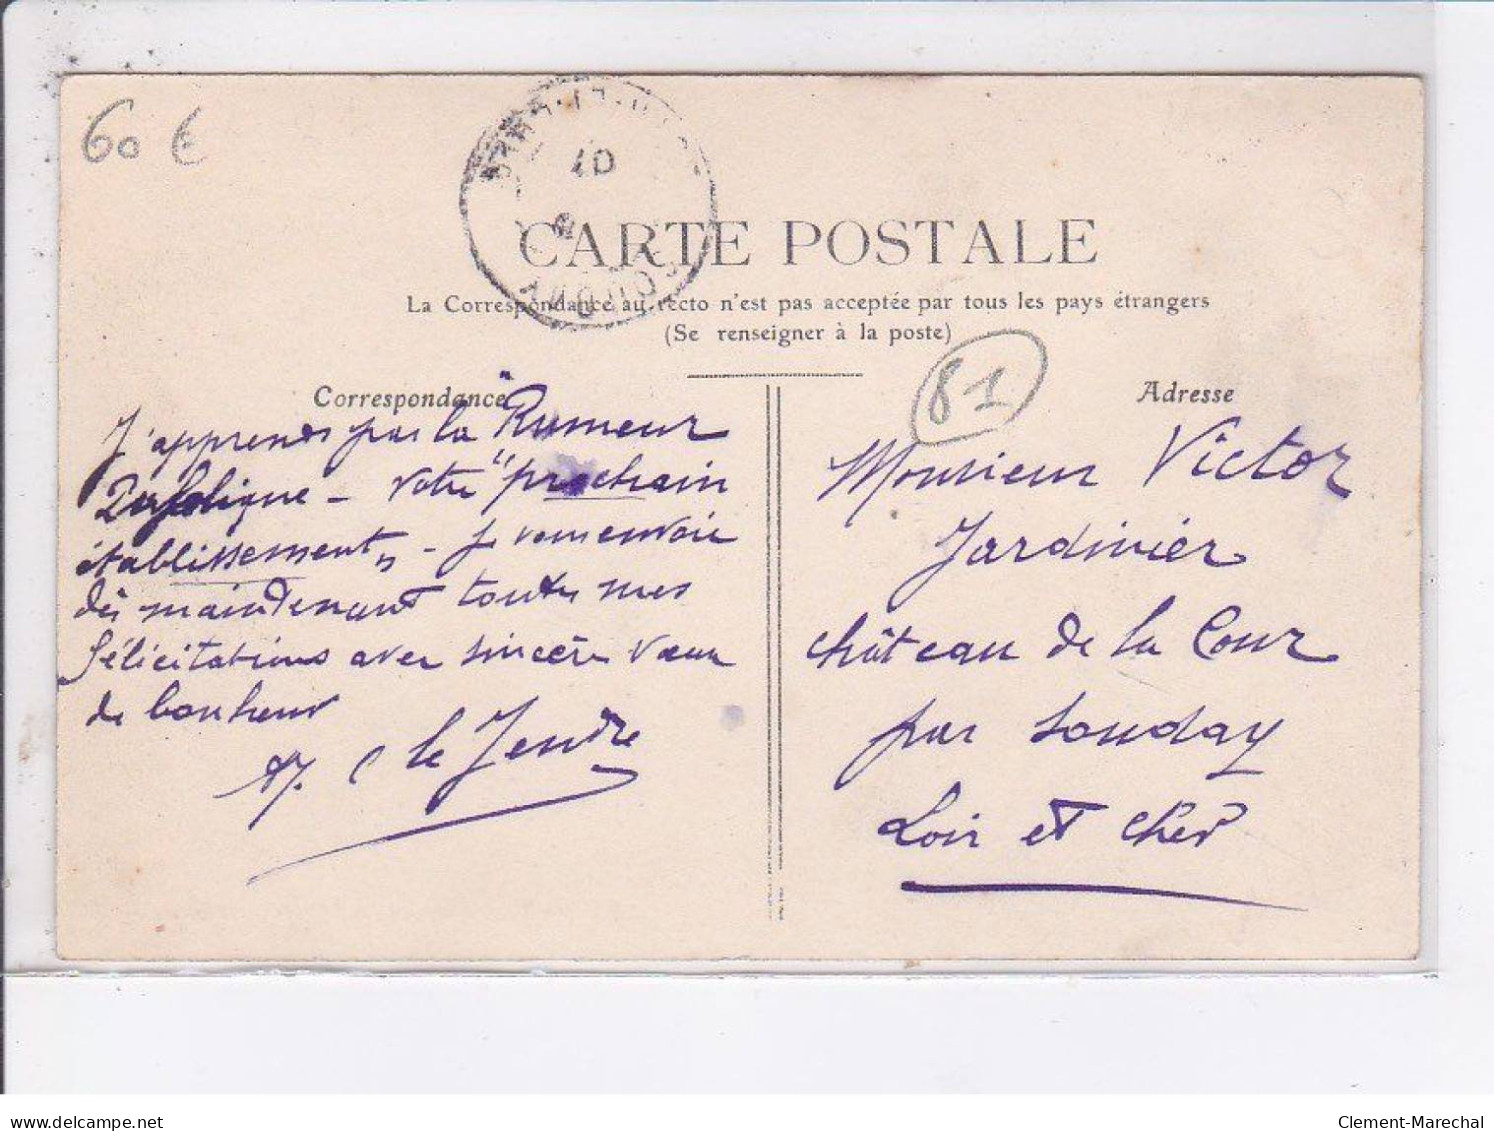 60 €
07
SOUDAY
CARTE POSTALE
La Correspondance au recto n'est pas acceptée par tous les pays étrangers
(Se renseigner à la poste)
81
Correspondance
J'apprends par la "Rumeur
Publique" - votre "prochain
établissement" - Je vous envoie
dès maintenant toutes mes
félicitations avec sincères vœux
de bonheur
le Jendre
Adresse
Monsieur Victor
Jardinier
château de la Cour
par Souday
Loir et Cher
www.delcampe.net
Clement-Marechal